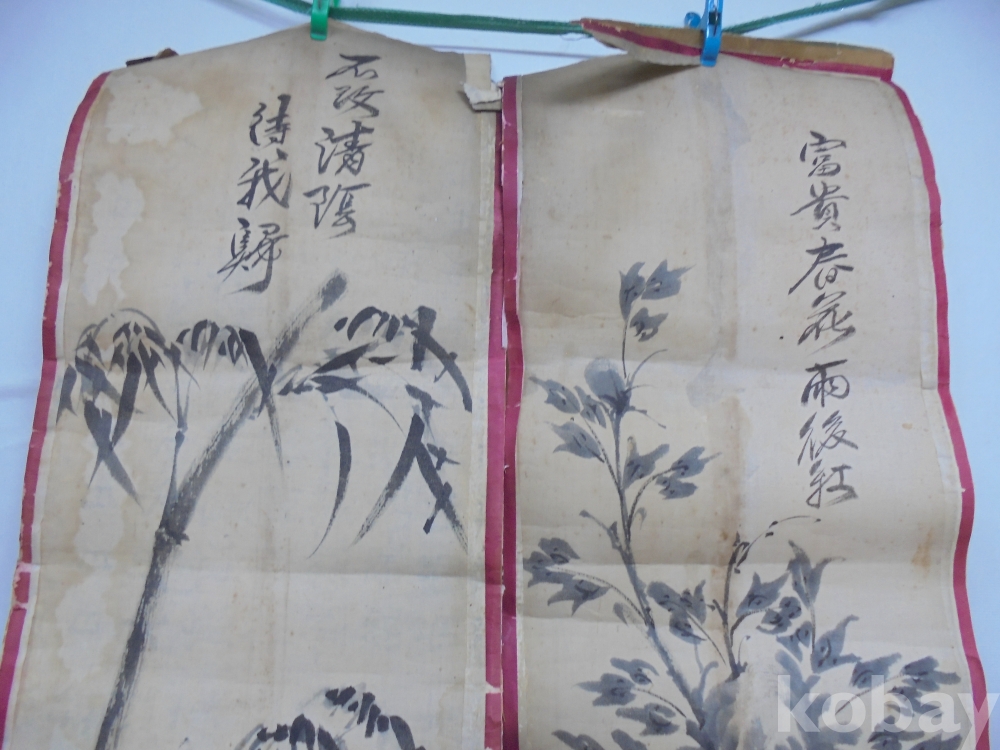 富貴春花雨後紅
不改清陰
待我歸
kobay